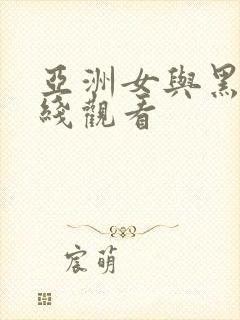 亞洲女與黑
綫觀看
宸萌